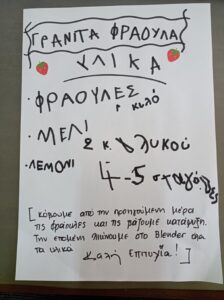 ΓΡΑΝΙΤΑ ΦΡΑΟΥΛΑ
ΥΛΙΚΑ
·ΦΡΑΟΥΛΕΣ 1 κιλό
·ΜΕΛΙ 2 κ. γλυκού
·ΛΕΜΟΝΙ 4-5 σταγόνες
[ Κόβουμε από την προηγούμενη μέρα
τις φράουλες και τις βάζουμε κατάψυξη.
Την επομένη χτυπάμε στο Blender όλα
τα υλικά
Καλή επιτυχία! ]